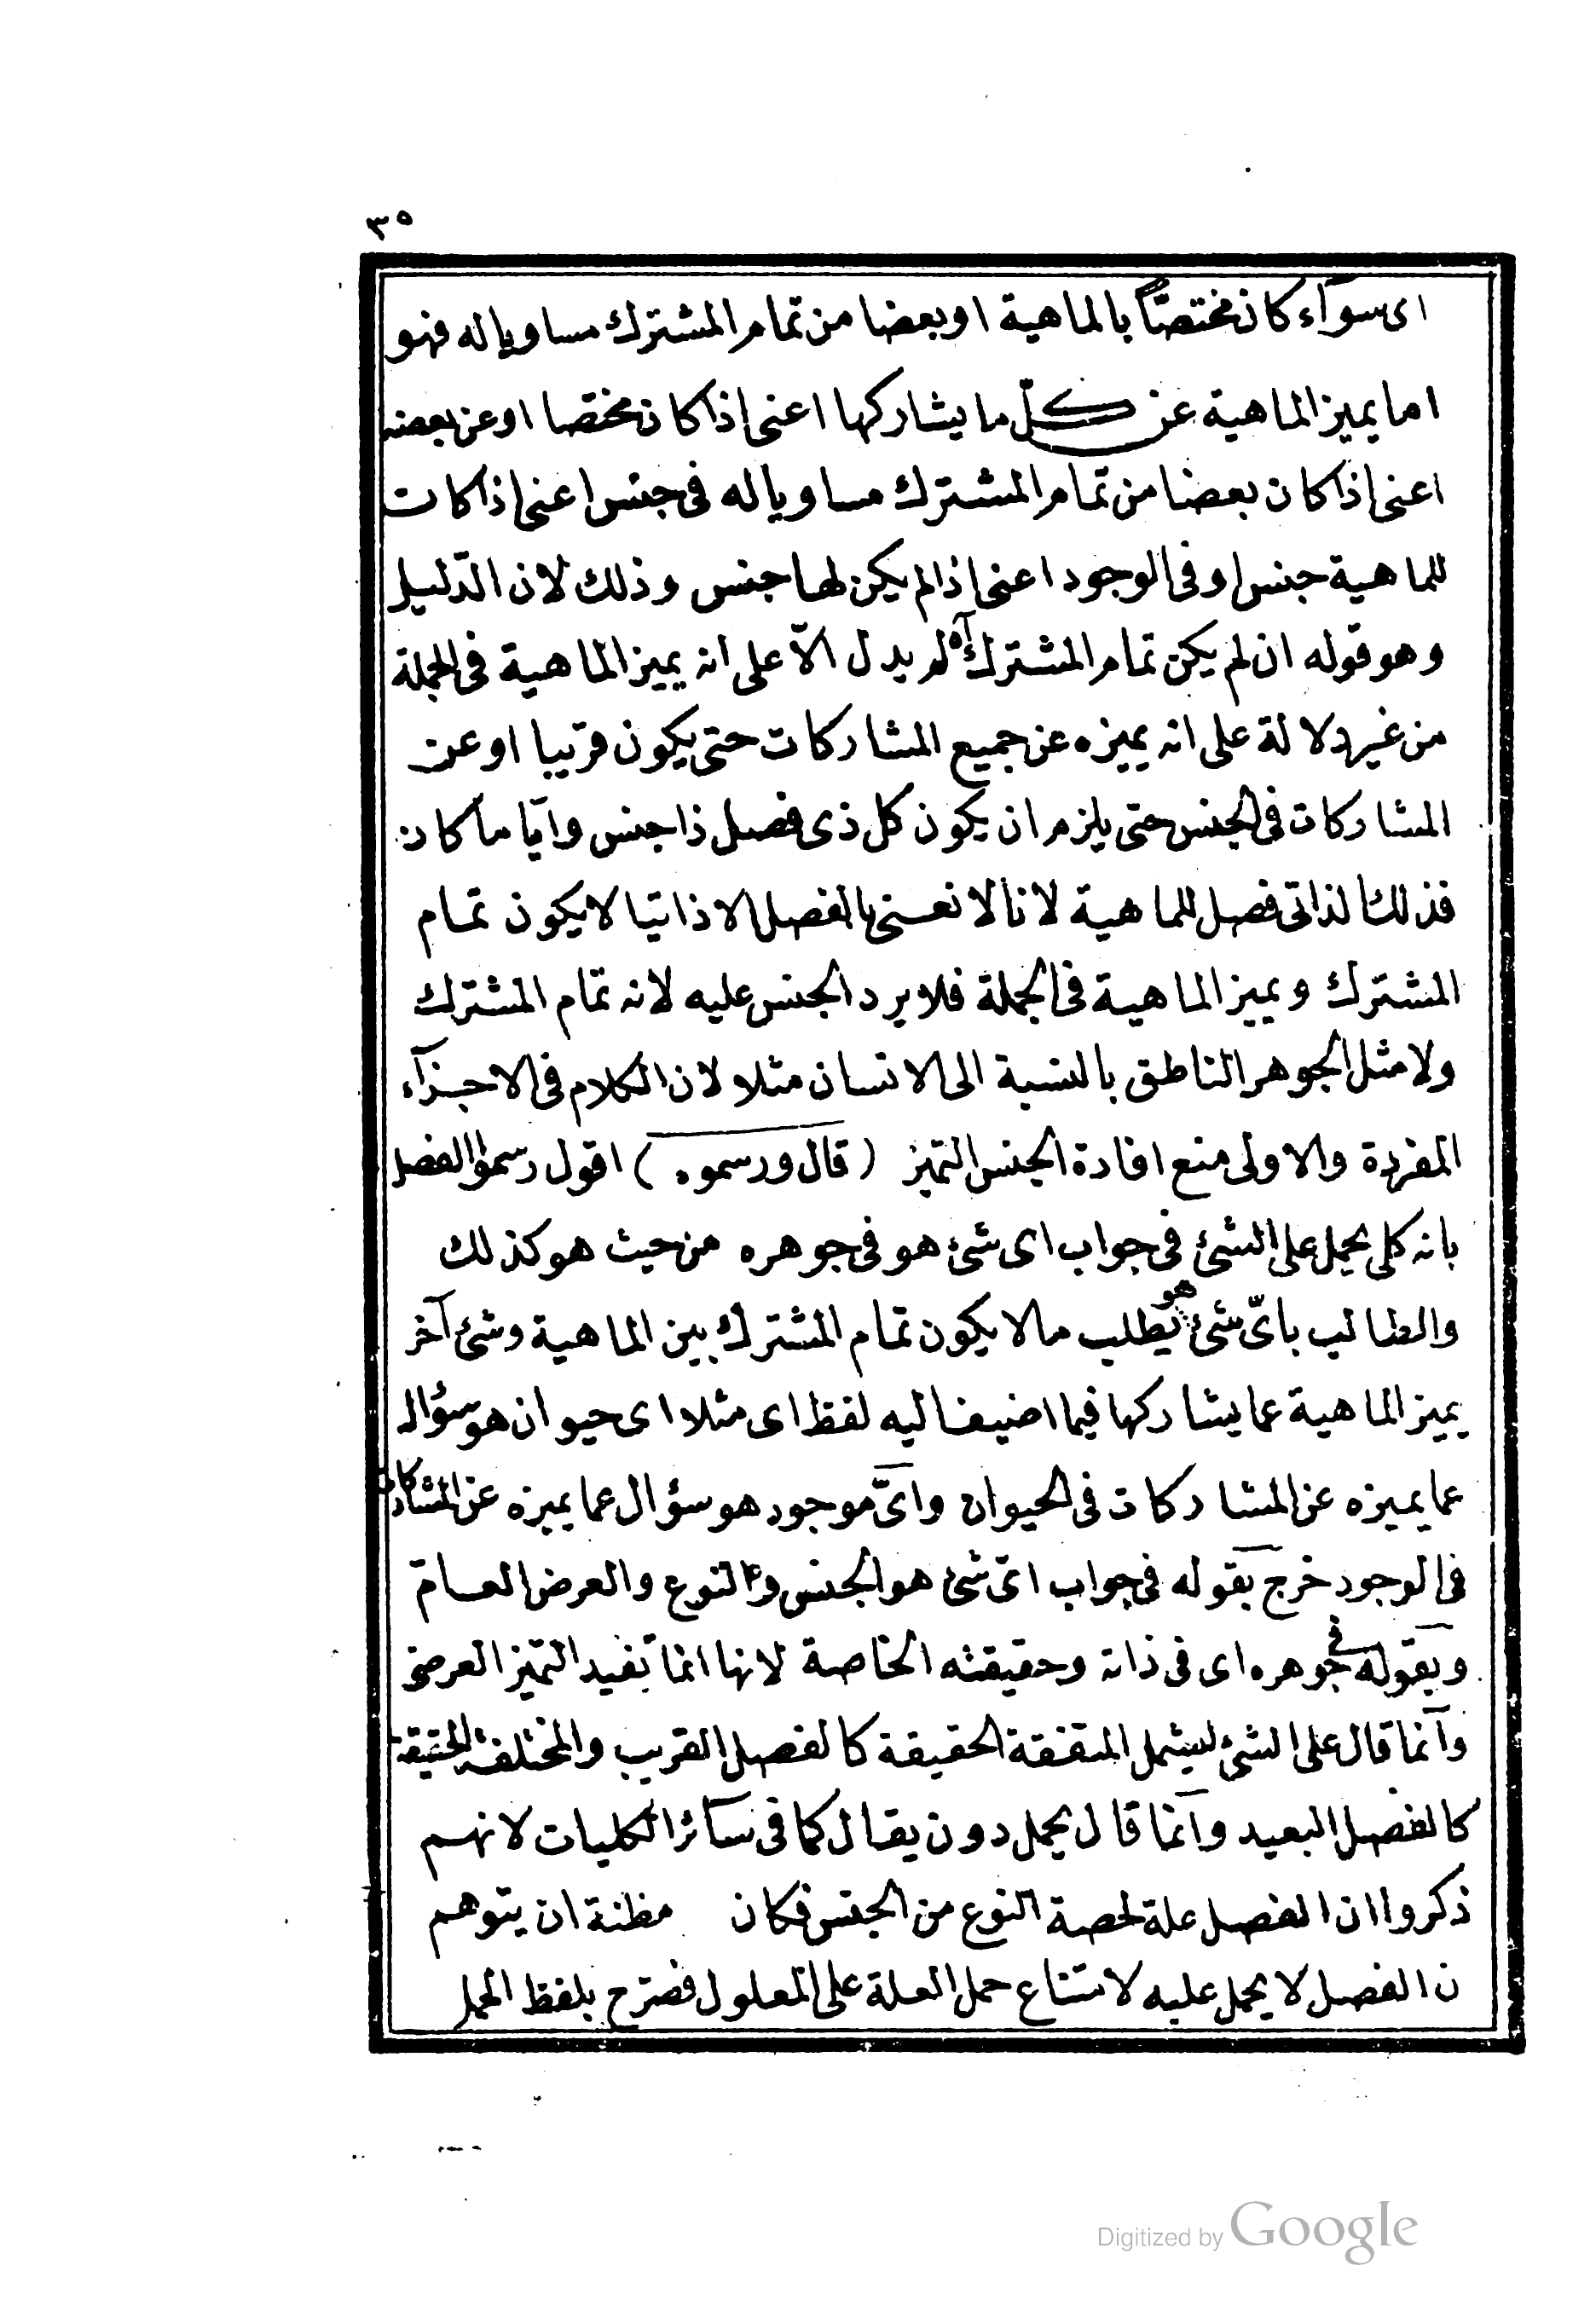 ٣٥
اى سوآء كان مختصّاً بالماهية او بعضا من تمام المشترك مساويا له فهو
اما يميز الماهية عن كلّ ما يشاركها اعنى اذا كان مختصا او عن بعضه
اعنى اذا كان بعضا من تمام المشترك مساويا له فى جنس اعنى اذا كان
للماهية جنس او فى الوجود اعنى اذا لم يكن لها جنس وذلك لان الدّليل
وهو قوله ان لم يكن تمام المشترك آه لم يدل الاّ على انه يميز الماهية فى الجملة
من غير دلالة على انه يميزه عن جميع المشاركات حتى يكون قريبا او عن
المشاركات فى الجنس حتى يلزم ان يكون كل ذى فصل ذا جنس وآيا ما كان
فذلك الذاتى فصل للماهية لانا لا نعنى بالفصل الا ذاتيا لا يكون تمام
المشترك ويميز الماهية فى الجملة فلا يرد الجنس عليه لانه تمام المشترك
ولا مثل الجوهر الناطق بالنسبة الى الانسان مثلا لان الكلام فى الاجزآء
المفردة والاولى منع افادة الجنس التميز (قال ورسموه) اقول رسموا الفصل
بانه كلى يحمل على الشئ فى جواب اى شئ هو فى جوهره من حيث هو كذلك
والطالب باىّ شئ هو يطلب ما لا يكون تمام المشترك بين الماهية وشئ آخر
يميز الماهية عما يشاركها فيما اضيف اليه لفظ اى مثلا اى حيوان هو سؤال
عما يميزه عن المشاركات فى الحيوان واىّ موجود هو سؤال عما يميزه عن المشاركات
فى الوجود خرج بقوله فى جواب اىّ شئ هو الجنس والنوع والعرض العام
وبقوله فى جوهره اى فى ذاته وحقيقته الخاصة لانها انما تفيد التميز العرضى
وآنما قال على الشئ ليشمل المتفقة الحقيقة كالفصل القريب والمختلفة الحقيقة
كالفصل البعيد وآنما قال يحمل دون يقال كما فى سآئر الكليات لانهم
ذكروا ان الفصل علة لحصة النوع من الجنس فكان مظنة ان يتوهم
ن الفصل لا يحمل عليه لامتناع حمل العلة على المعلول فصرّح بلفظ الحمل
Digitized by Google